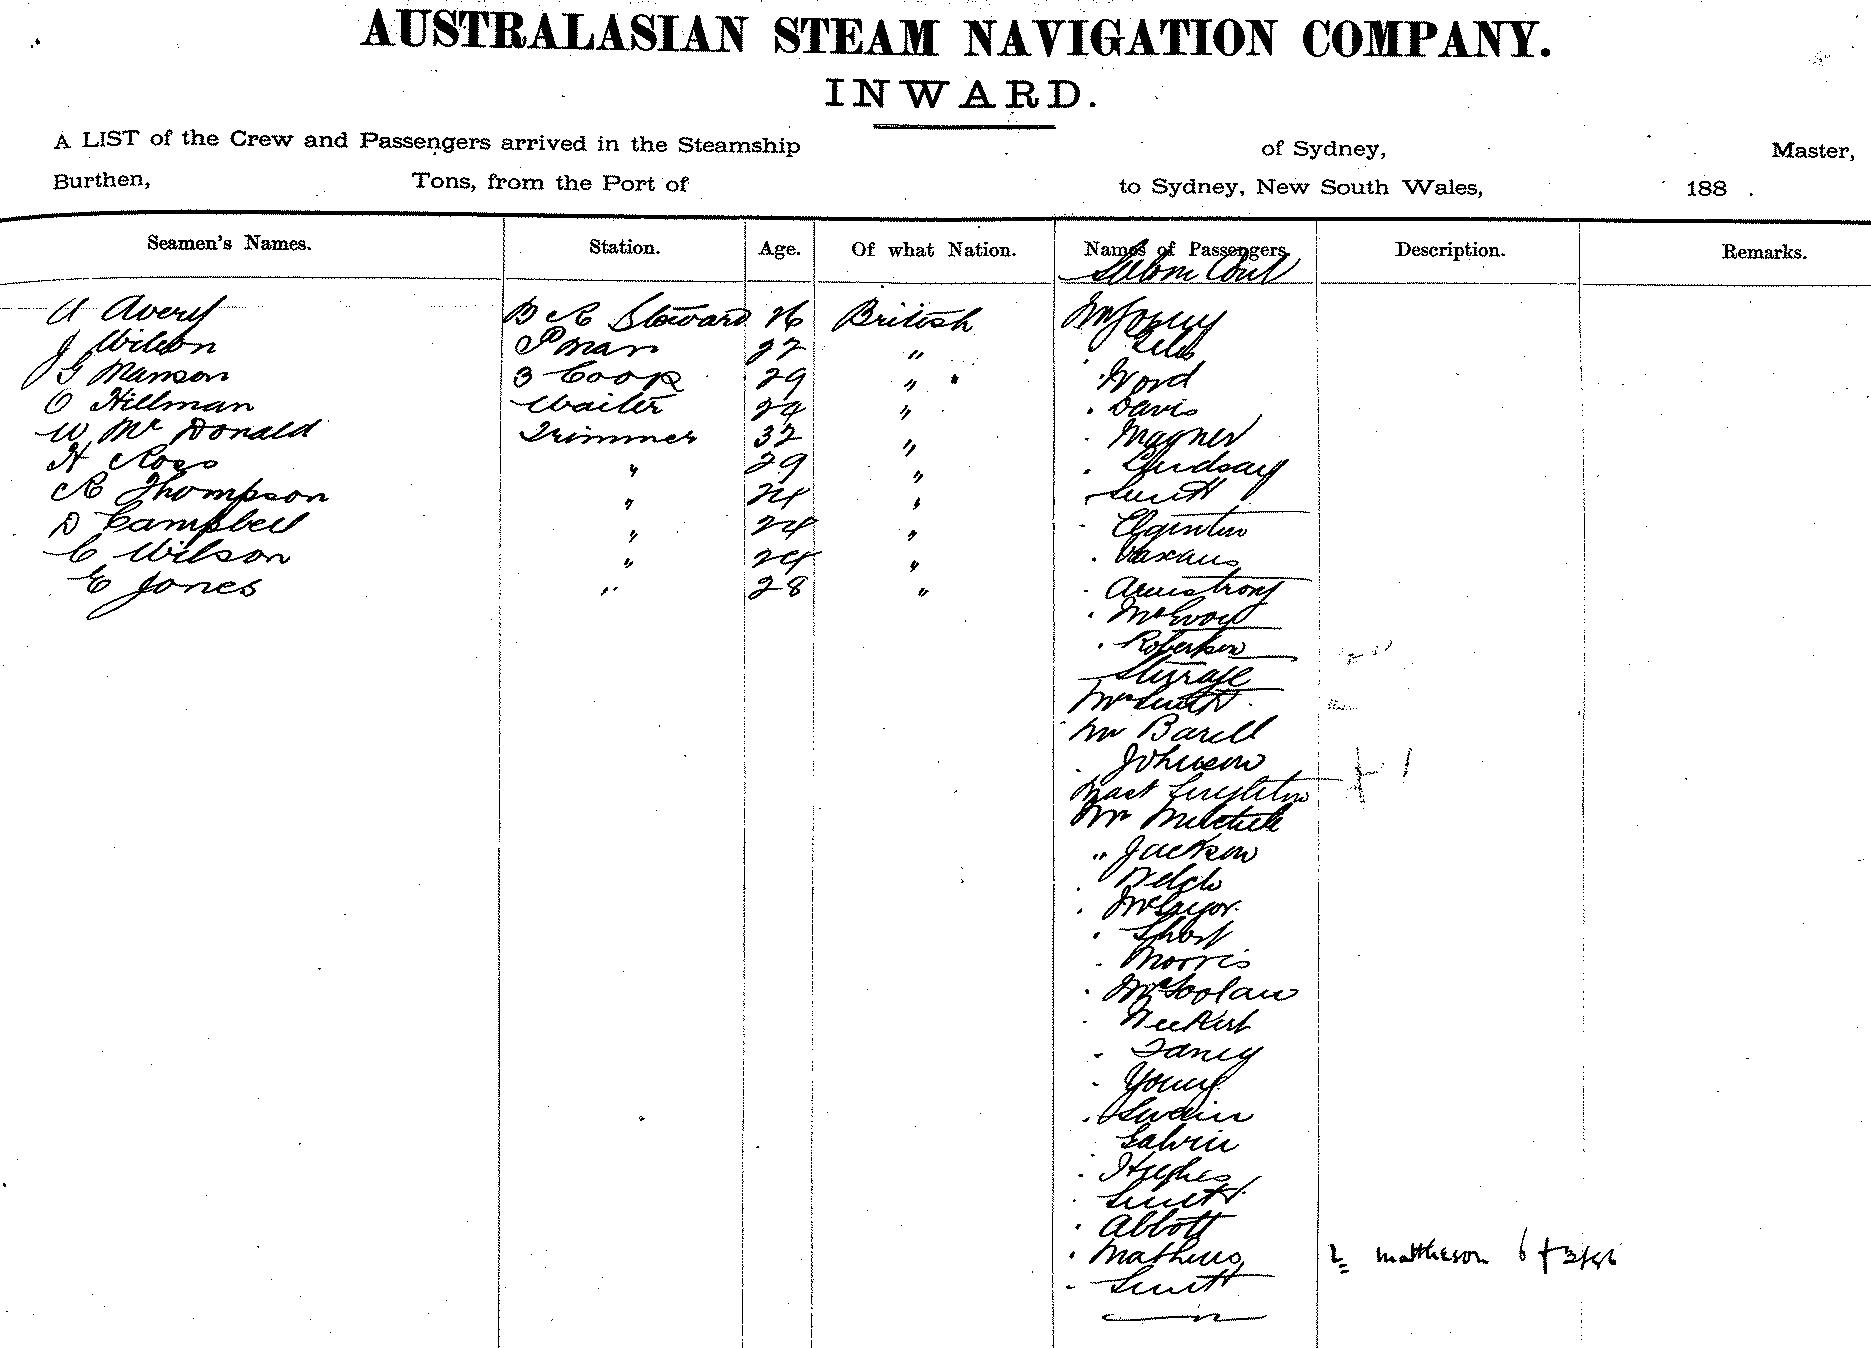 AUSTRALASIAN STEAM NAVIGATION COMPANY.
INWARD.
A LIST of the Crew and Passengers arrived in the Steamship of Sydney, Master,
Burthen, Tons, from the Port of to Sydney, New South Wales, 188 .
Seamen's Names. Station. Age. Of what Nation. Names of Passengers. Description. Remarks.
Saloon Cont
A Avery B R Steward 26 British Mr
J Wilson P man 22 "
G Manson 3 Cook 29 " Ward
O Hillman Waiter 24 " Davis
W Mc Donald Trimmer 32 " Magner
H Ross " 29 " Lindsay
R Thompson " 24 " Smith
D Campbell " 24 "
C Wilson " 24 "
E Jones " 28 " Armstrong
McEvoy
Robertson
Steerage
Mrs Smith
Mr Barell
Johnson
Mast Singleton
Mr Mitchell
" Jackson
Welch
Short
Morris
Young
Swain
Galvin
Hughes
Smith
Abbott
Mathews Mattheson
Smith